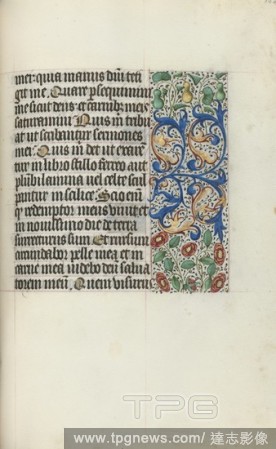 mei: quia manus dñi teti
git me. Quare persequimini
me sicut deus: et carnibz meis
saturamini. Quis m̃ tribu
at ut scribantur sermones
mei: Quis m̃ det ut exarẽ
tur in libro stilo ferreo aut
plũbi lamina uel celte scul
pantur in silice. Scio eñi
q̃ redemptor meus uiuit et
in nouissimo die de terra
surrecturus sum. Et rursum
circũdabor pelle mea: et in
carne mea uidebo deũ salua
torem meũ. Quem uisurus
TPG
www.tpgnews.com/達志影像